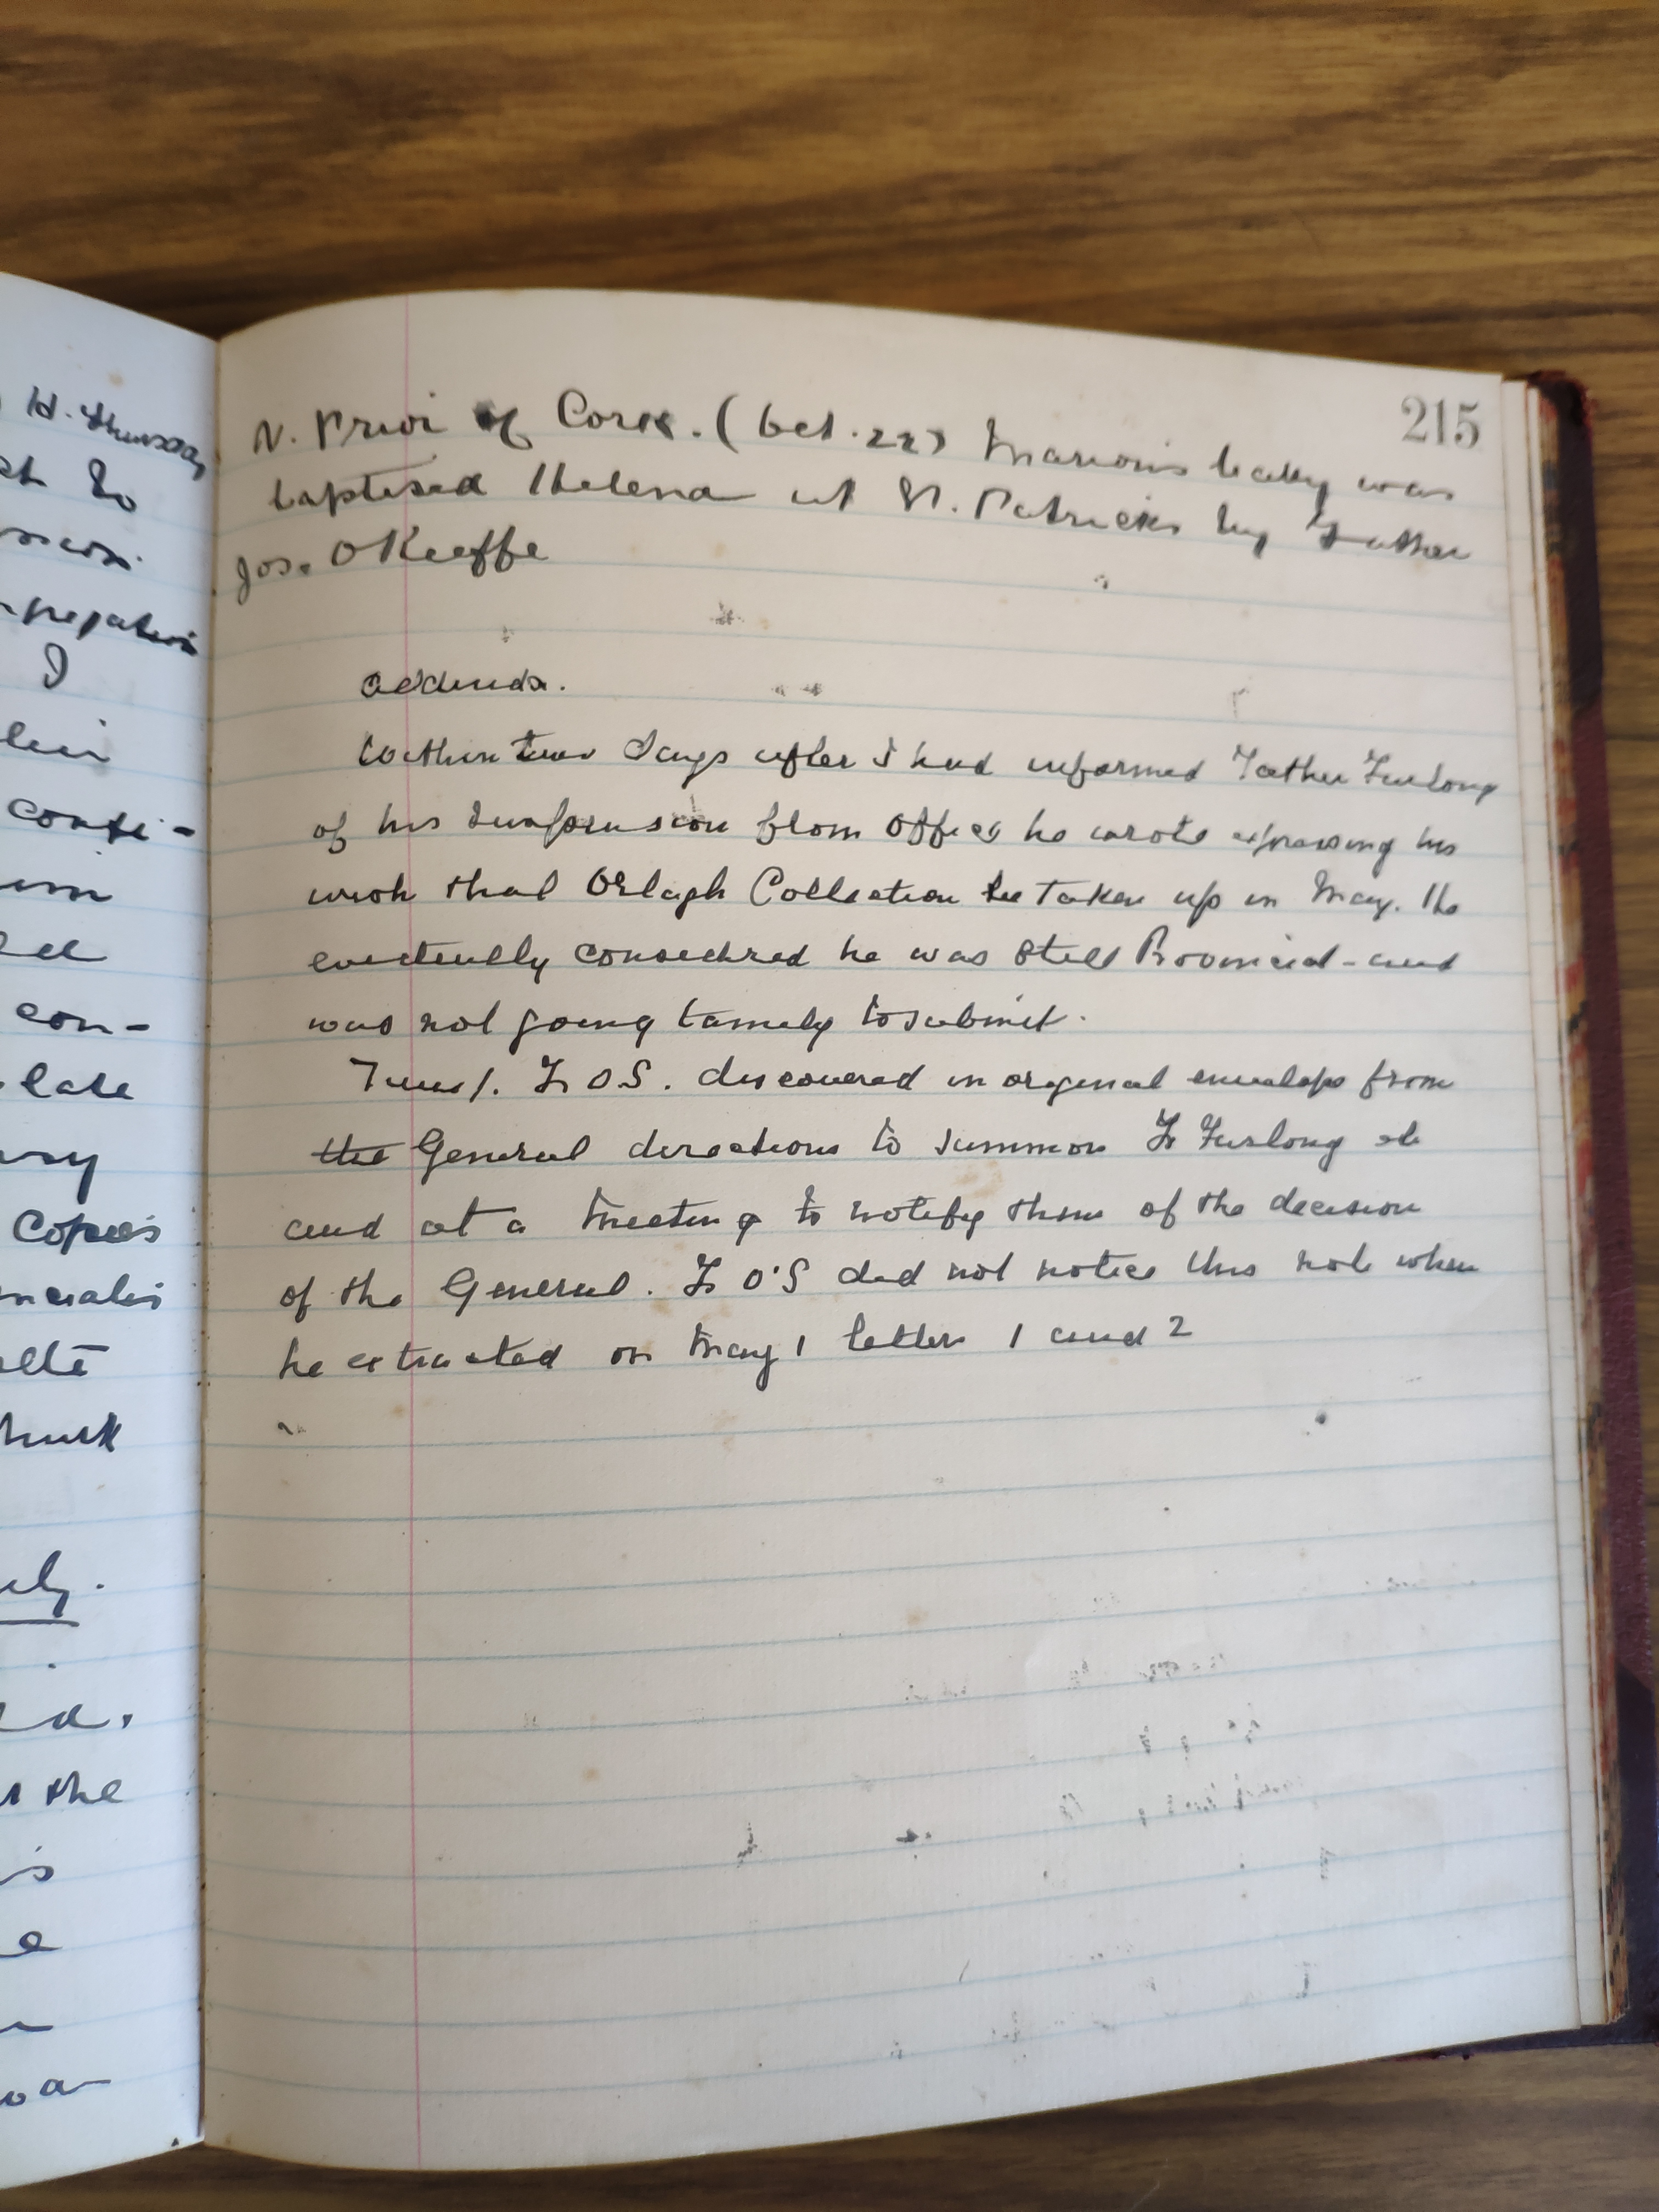 215
V. Prior of Cork. (Oct. 22) Marion's baby was
baptised Helena at St. Patricks by Father
Jos. O'Keeffe
addenda.
Within two days after I had informed Father Furlong
of his suspension from office he wrote expressing his
wish that Orlagh Collection be taken up in May. He
evidently considered he was still Provincial - and
was not going tamely to submit.
Fr O.S. discovered in original envelope from
the General directions to summon Fr Furlong etc
and at a meeting to notify them of the decision
of the General. Fr O'S did not notice this note when
he extracted on May 1 letters 1 and 2
H. Thursday
I
confi-
con-
late
Copies
the